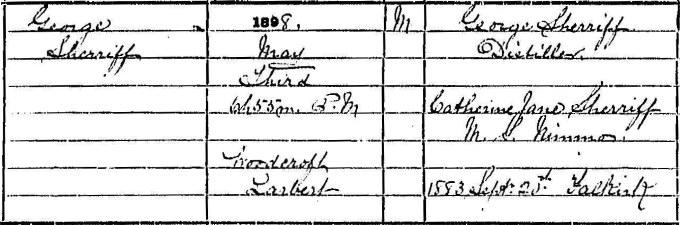 George 1898. M George Sherriff
Sherriff May Distiller
Third
6h 55m. P.M Catherine Jane Sherriff
M. S. Nimmo.
Woodcroft
Larbert 1883 Sept. 25th Falkirk